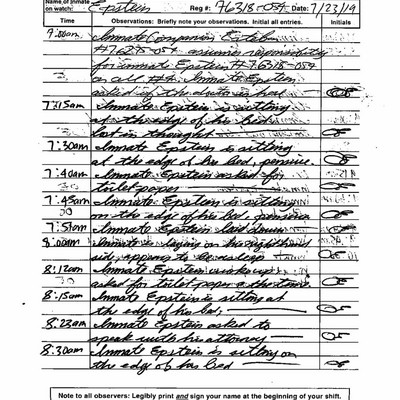 Name of Inmate
on watch: Epstein Reg #: 76318-054 Date: 7/23/19
Time Observations: Briefly note your observations. Initial all entries. Initials
7:00am Inmate Companion
assumes responsibility
for inmate Epstein # 76318-054
on cell #4. Inmate Epstein
asked if the
7:15am Inmate Epstein is sitting
at the edge of his bed
lost in thought
7:30am Inmate Epstein is sitting
at the edge of his bed, pensive.
7:40am Inmate Epstein asked for
toilet paper
7:45am Inmate Epstein is sitting
on the edge of his bed, pensive
7:51am Inmate Epstein laid down
8:00am Inmate is laying on his right hand
side, appears to be asleep
8:12am Inmate Epstein woke up
asked for toilet paper
8:15am Inmate Epstein is sitting at
the edge of his bed,
8:23am Inmate Epstein asked to
speak with his attorney
8:30am Inmate Epstein is sitting on
the edge of his bed
Note to all observers: Legibly print and sign your name at the beginning of your shift.